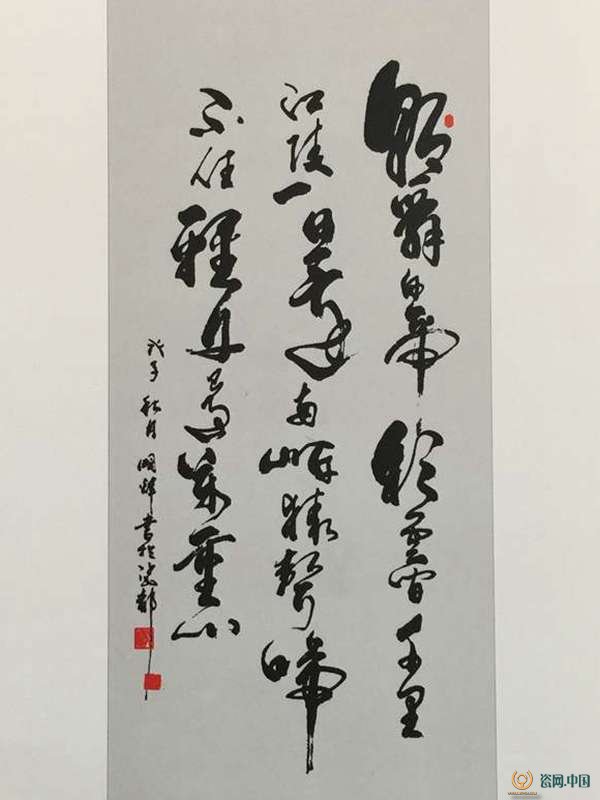 朝辭白帝彩雲間千里
江陵一日還兩岸猿聲啼
不住輕舟已過萬重山
戊子秋月 書於瓷都
瓷网.中国